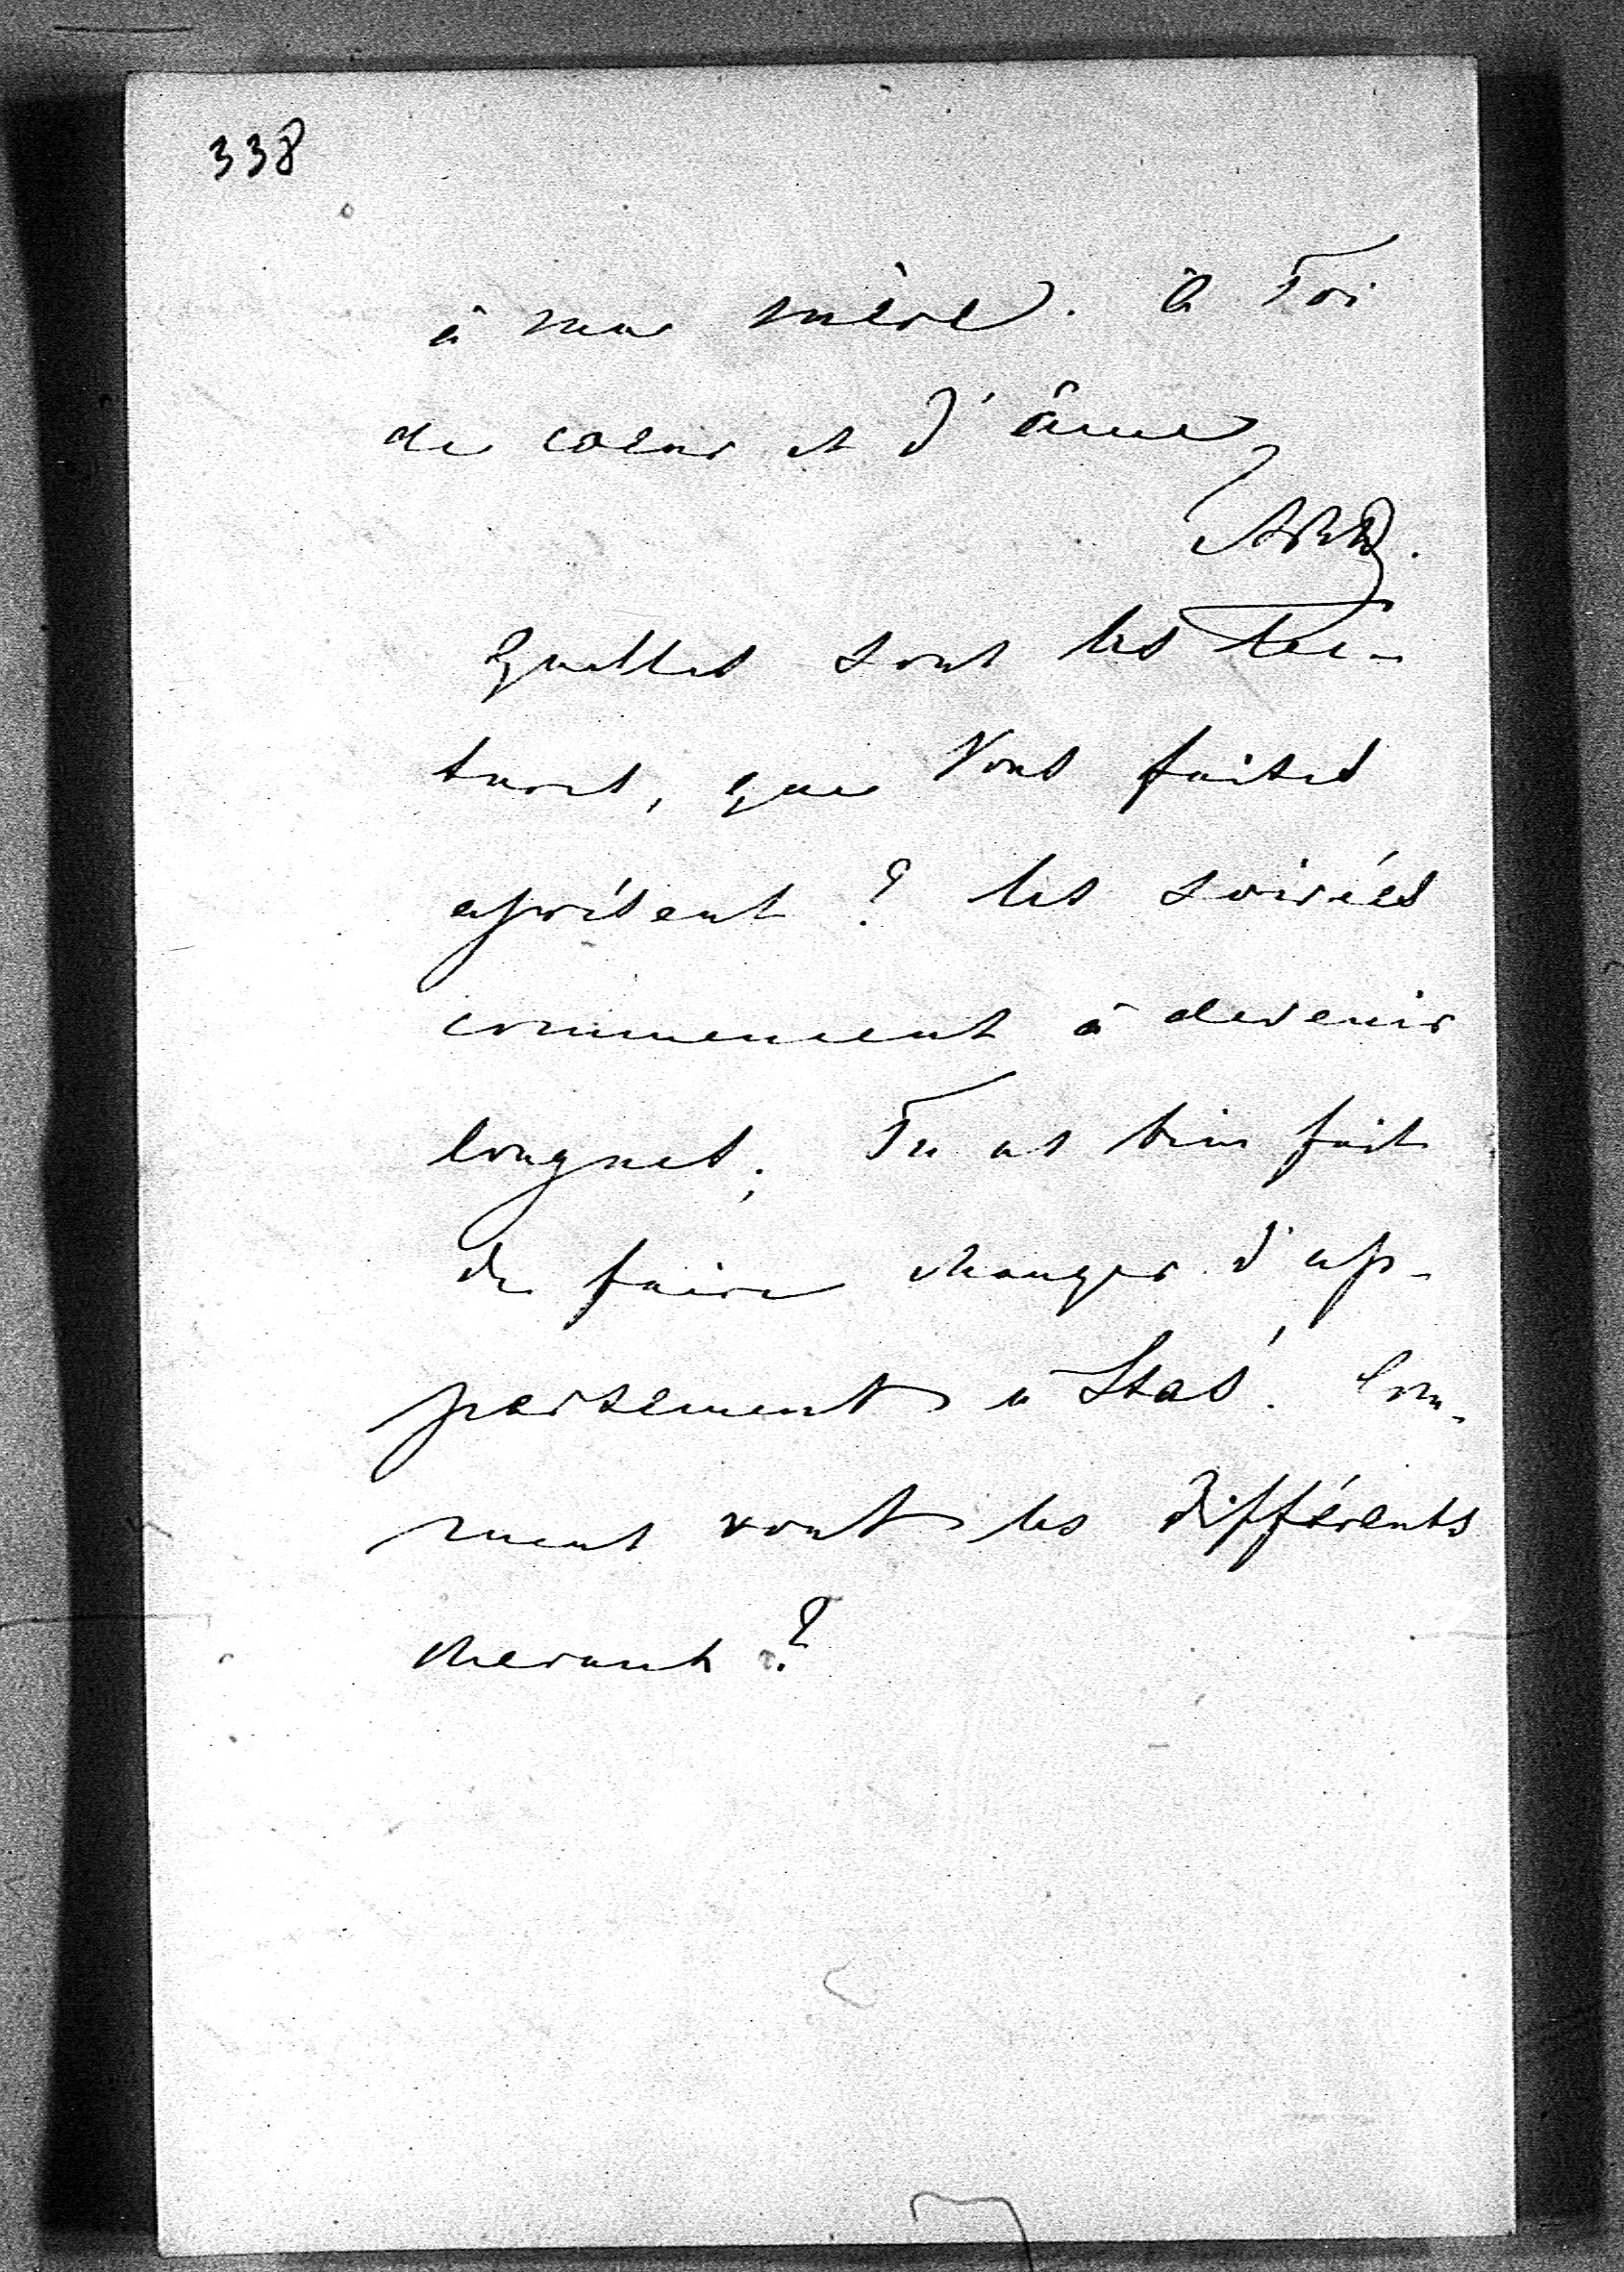 338
à ma mère. à Toi
de coeur et d'âme
Quelles sont les lec-
tures, que Vous faites
aprésent ? les soirées
commencent à devenir
longues; Tu as bien fait
de faire changer d'ap-
partement à Stas'. Com-
ment vont les différents
chevaux ?